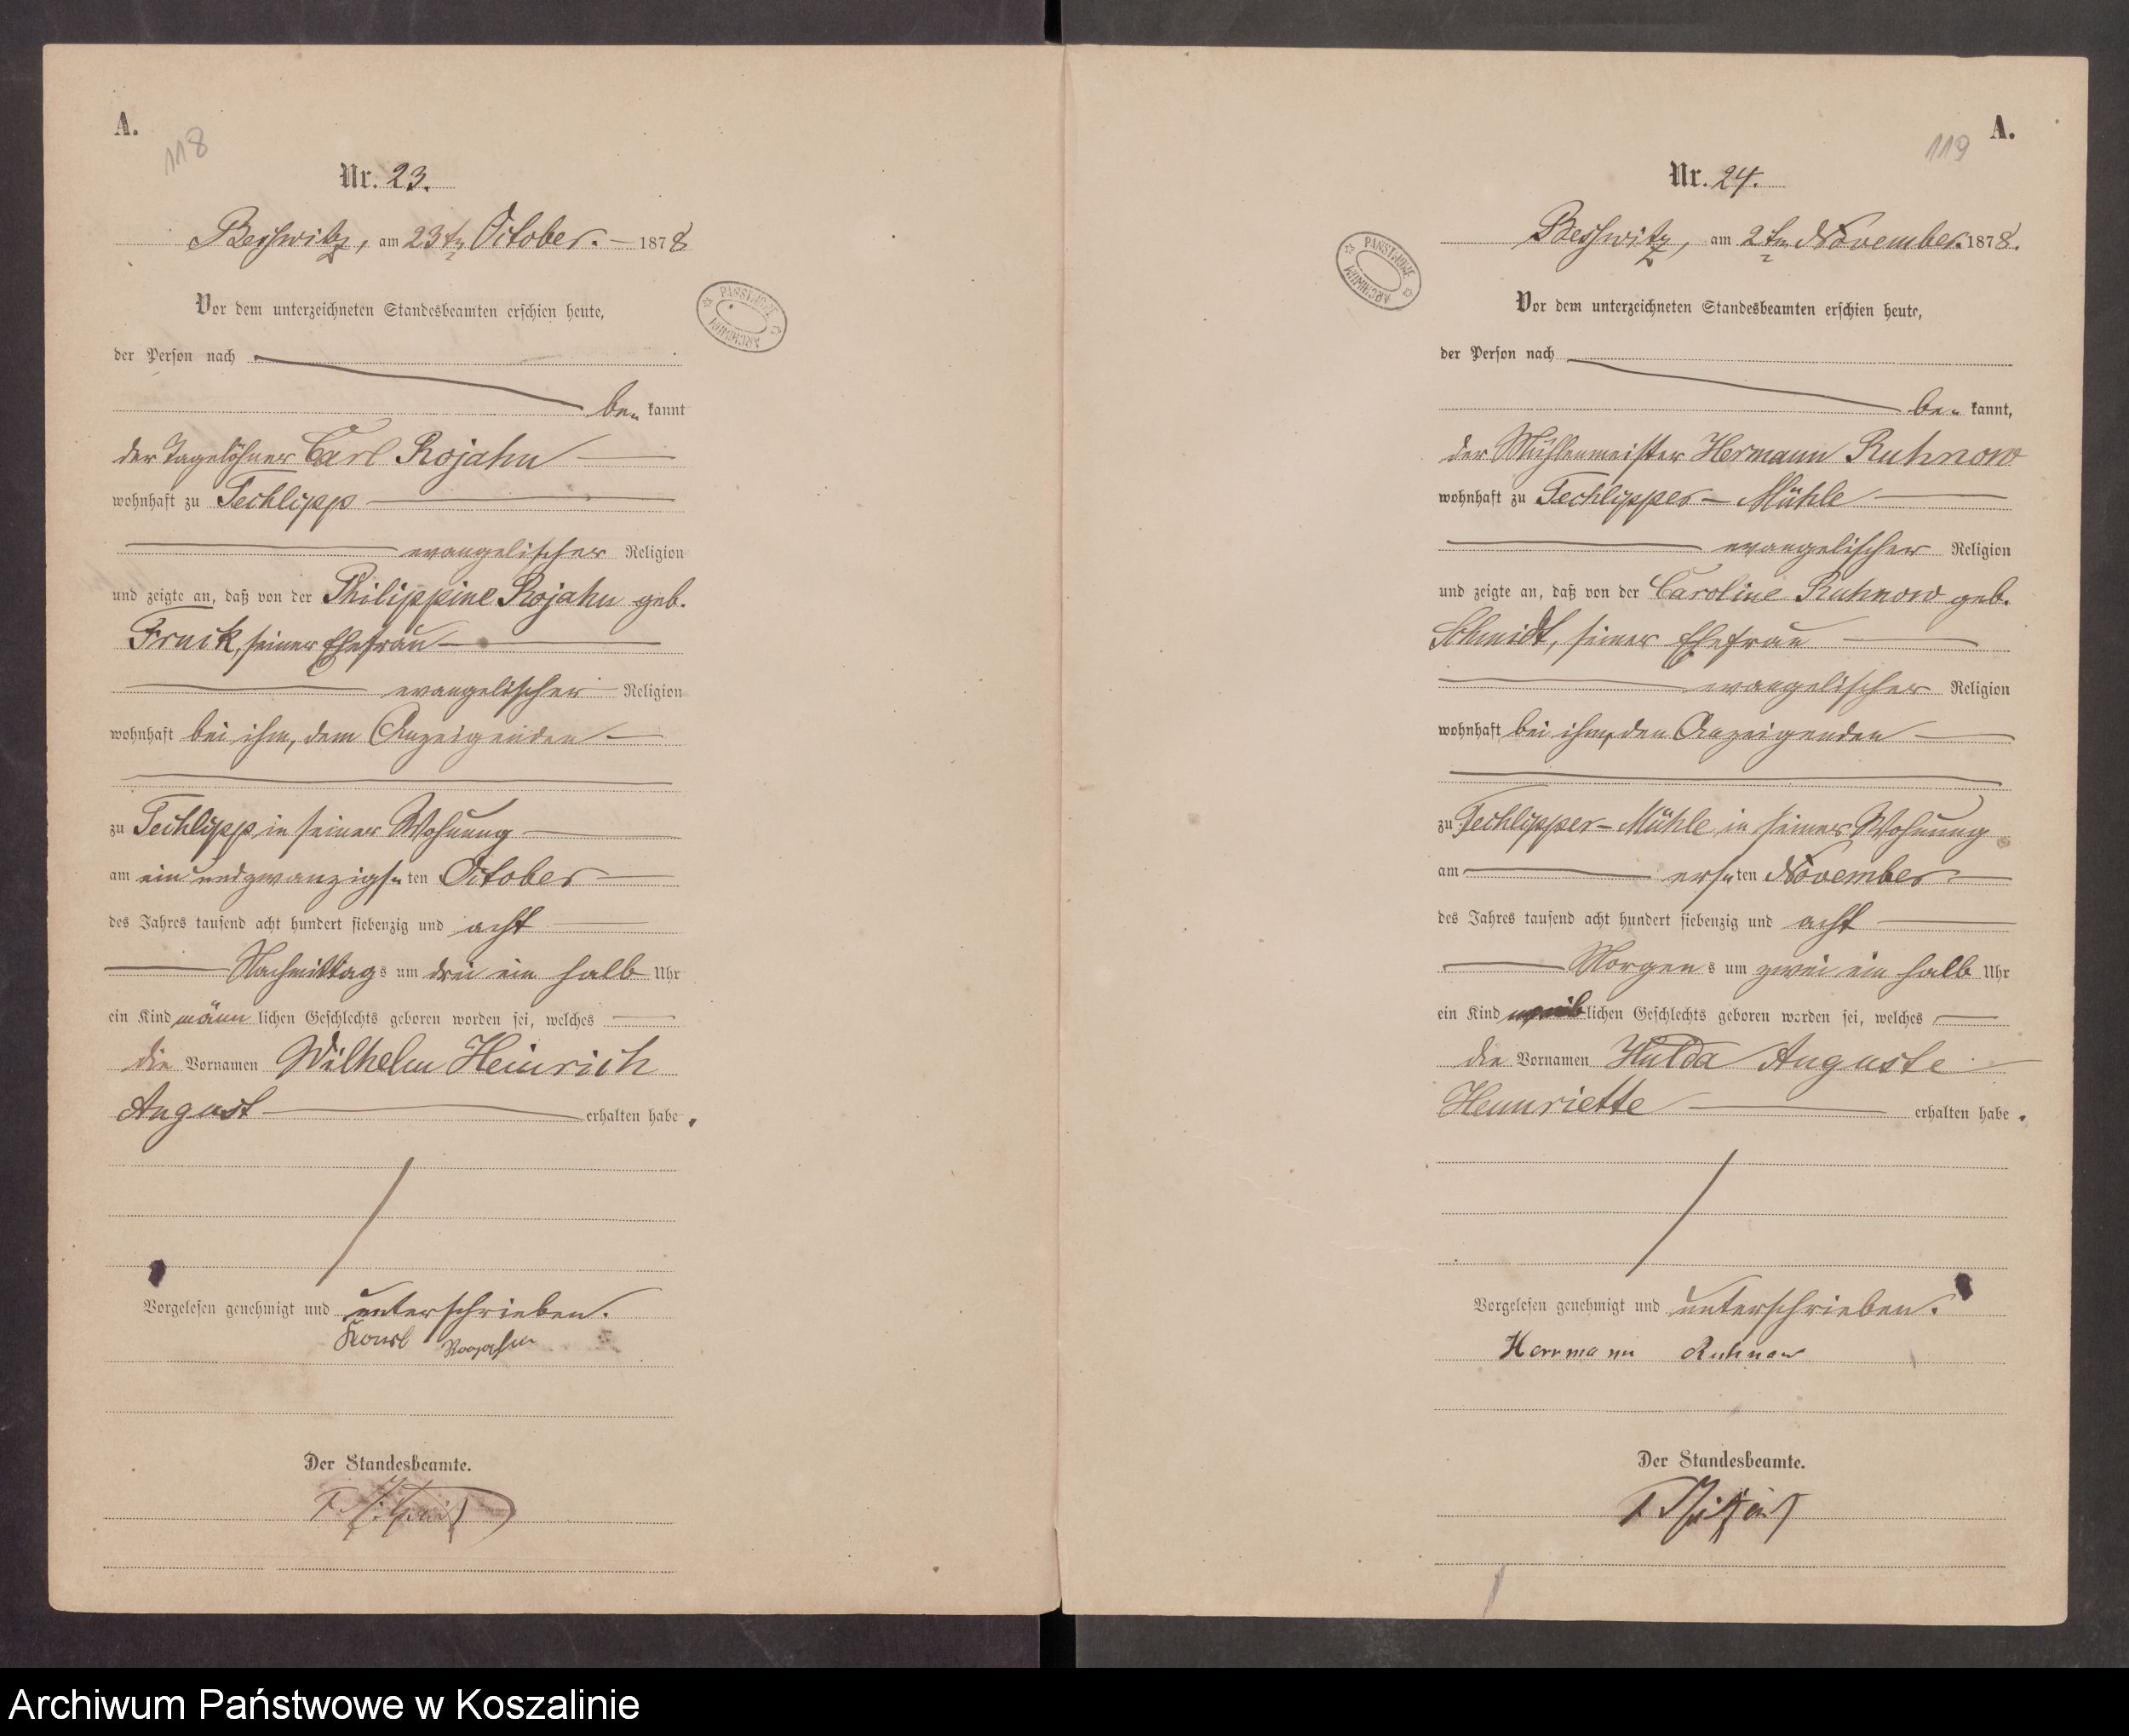 A.
118
Nr. 23.
Besswitz, am 23ten October. 1878
Vor dem unterzeichneten Standesbeamten erschien heute,
der Person nach
be kannt
der Tagelöhner Carl Rojahn
wohnhaft zu Techlipp
evangelischer Religion
und zeigte an, daß von der Philippine Rojahn geb.
seiner Ehefrau
evangelischer Religion
wohnhaft bei ihm, dem Anzeigenden
zu Techlipp in seiner Wohnung
am ein und zwanzigsten October
des Jahres tausend acht hundert siebenzig und acht
Nachmittags um drei ein halb Uhr
ein Kind männlichen Geschlechts geboren worden sei, welches
die Vornamen Wilhelm Heinrich
August erhalten habe.
Vorgelesen genehmigt und unterschrieben.
Der Standesbeamte.
PAŃSTWOWE ARCHIWUM
A.
119
Nr. 24.
Besswitz, am 2ten November 1878.
Vor dem unterzeichneten Standesbeamten erschien heute,
der Person nach
be kannt,
der Mühlenmeister Hermann Ruhnow
wohnhaft zu Techlipper-Mühle
evangelischer Religion
und zeigte an, daß von der Caroline Ruhnow geb.
Schmidt, seiner Ehefrau
evangelischer Religion
wohnhaft bei ihm, den Anzeigenden
zu Techlipper-Mühle in seiner Wohnung
am ersten November
des Jahres tausend acht hundert siebenzig und acht
Morgens um zwei ein halb Uhr
ein Kind weiblichen Geschlechts geboren worden sei, welches
die Vornamen Hulda Auguste
Hennriette erhalten habe.
Vorgelesen genehmigt und unterschrieben.
Herrmann Ruhnow
Der Standesbeamte.
PAŃSTWOWE ARCHIWUM
Archiwum Państwowe w Koszalinie